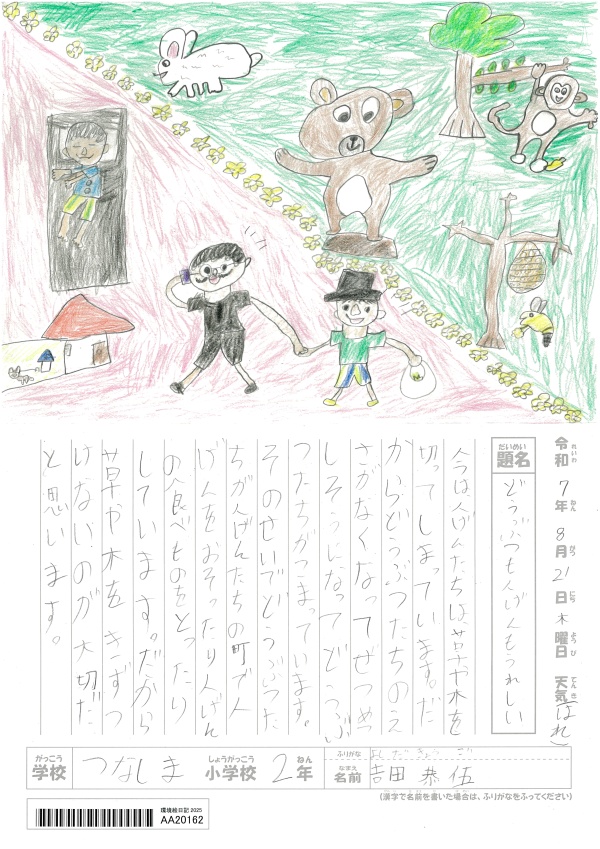 令和 7年 8月 21日 木曜日 天気(はれ)
れいわ ねん がつ にち ようび てんき
だいめい
題名
どうぶつもんげんもうれしい
今は人げんたちは、草や木を
切ってしまっています。だ
からどうぶつたちのえ
さがなくなってぜつめつ
しそうになってどうぶ
つたちがこまっています。
そのせいでどうぶつた
ちが人げんたちの町で人
げんをおそったり人げん
の食べものをとったり
しています。だから
草や木をきずつ
けないのが大切だ
と思います。
がっこう
学校
つなしま
しょうがっこう
小学校
2年
ねん
ふりがな
よしだ きょうご
なまえ
名前
吉田 恭伍
(漢字で名前を書いた場合は、ふりがなをふってください)
環境絵日記 2025
AA20162